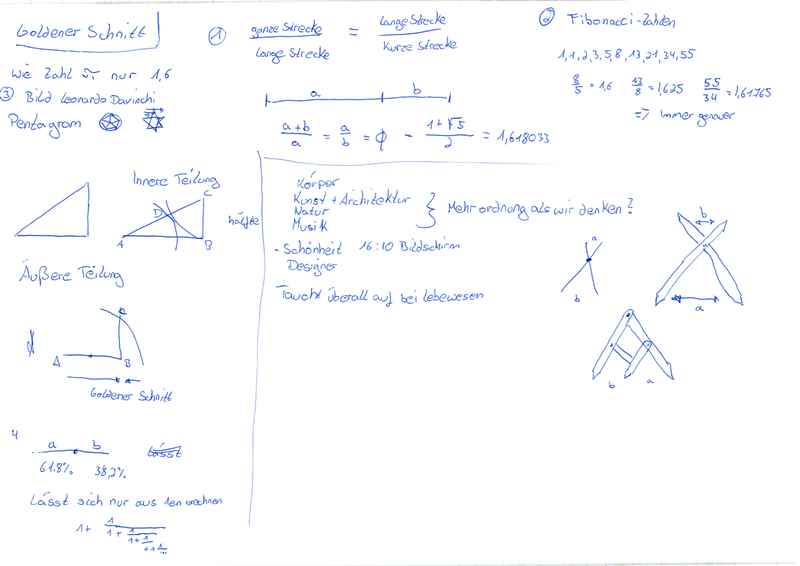 Goldener Schnitt
Wie Zahl π nur 1,6
③ Bild Leonardo Davinchi
Pentagram
① ganze Strecke / Lange Strecke = Lange Strecke / Kurze Strecke
a b
a+b / a = a / b = ϕ = 1+√5 / 2 = 1,618033
② Fibonacci-Zahlen
1,1,2,3,5,8,13,21,34,55
8/5 = 1,6 13/8 = 1,625 55/34 = 1,61765
=> Immer genauer
Innere Teilung
A B C D
hälfte
Äußere Teilung
A B
Goldener Schnitt
4
a b
61.8% 38,2%
Lässt
Lässt sich nur aus 1en errechnen
1 + 1 / 1 + 1 / 1 + 1 / + 1 1 / ...
Körper
Kunst + Architektur
Natur
Musik
Mehr ordnung als wir denken?
- Schönheit 16:10 Bildschirm
Designer
Taucht überall auf bei Lebewesen
a
b
b
a
b a